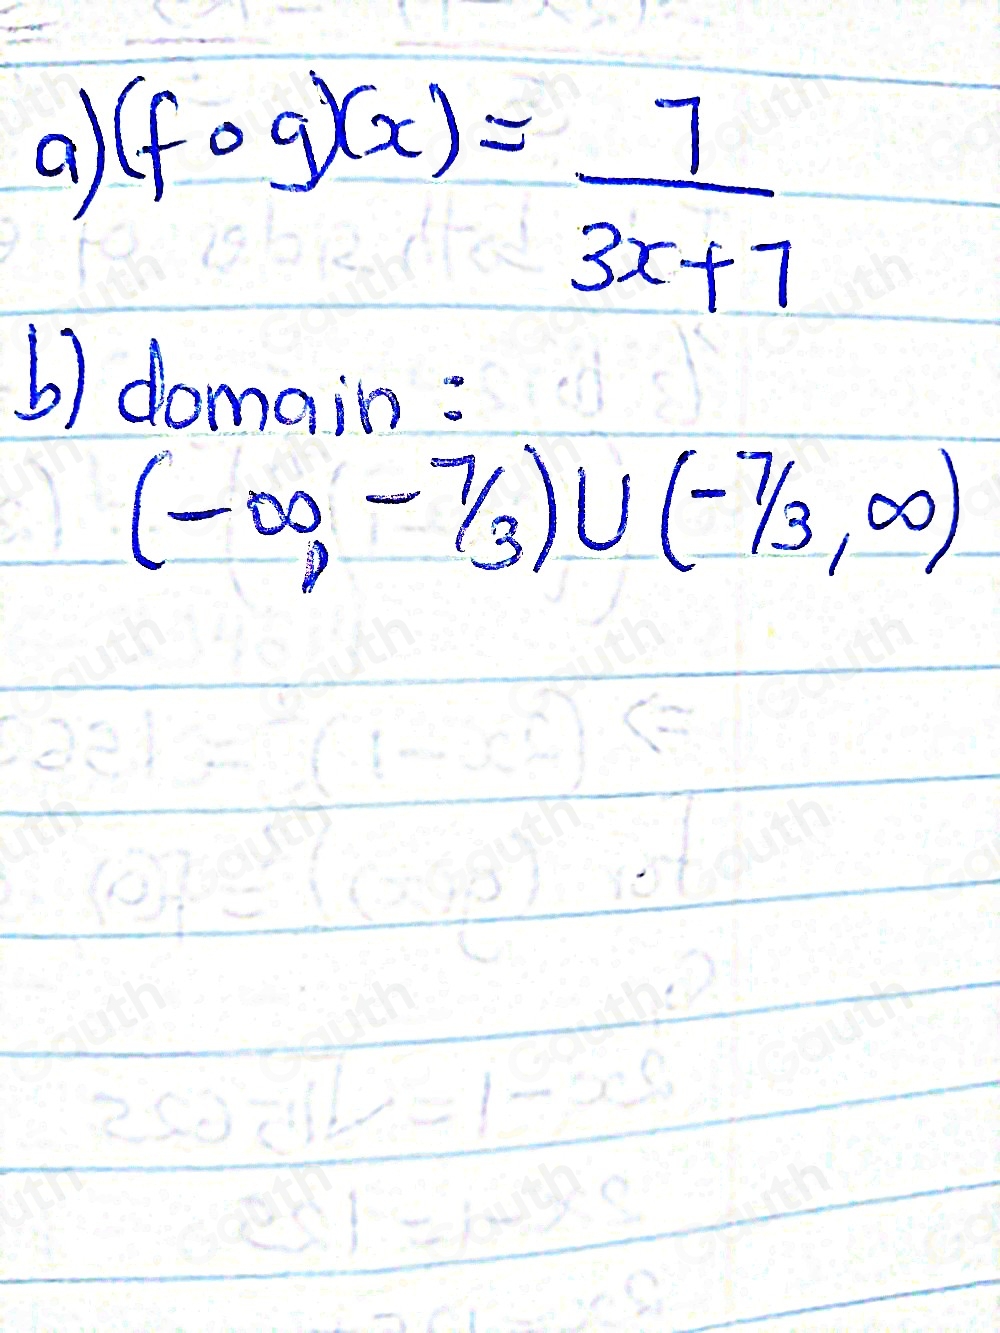 a) (f o g)(x) = 7
3x+7
b) domain :
(-∞, -7/3) ∪ (-7/3, ∞)